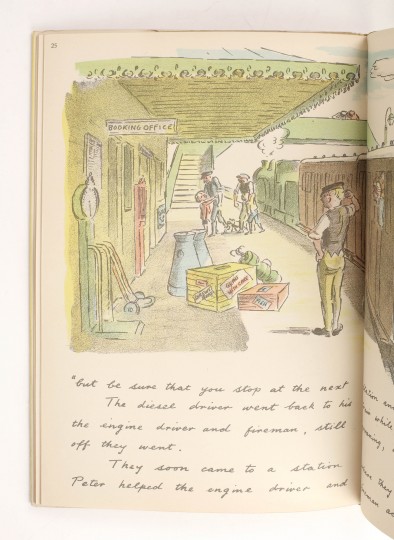 25
BOOKING OFFICE
"but be sure that you stop at the next
The diesel driver went back to his
the engine driver and fireman, still
off they went.
They soon came to a station
Peter helped the engine driver and